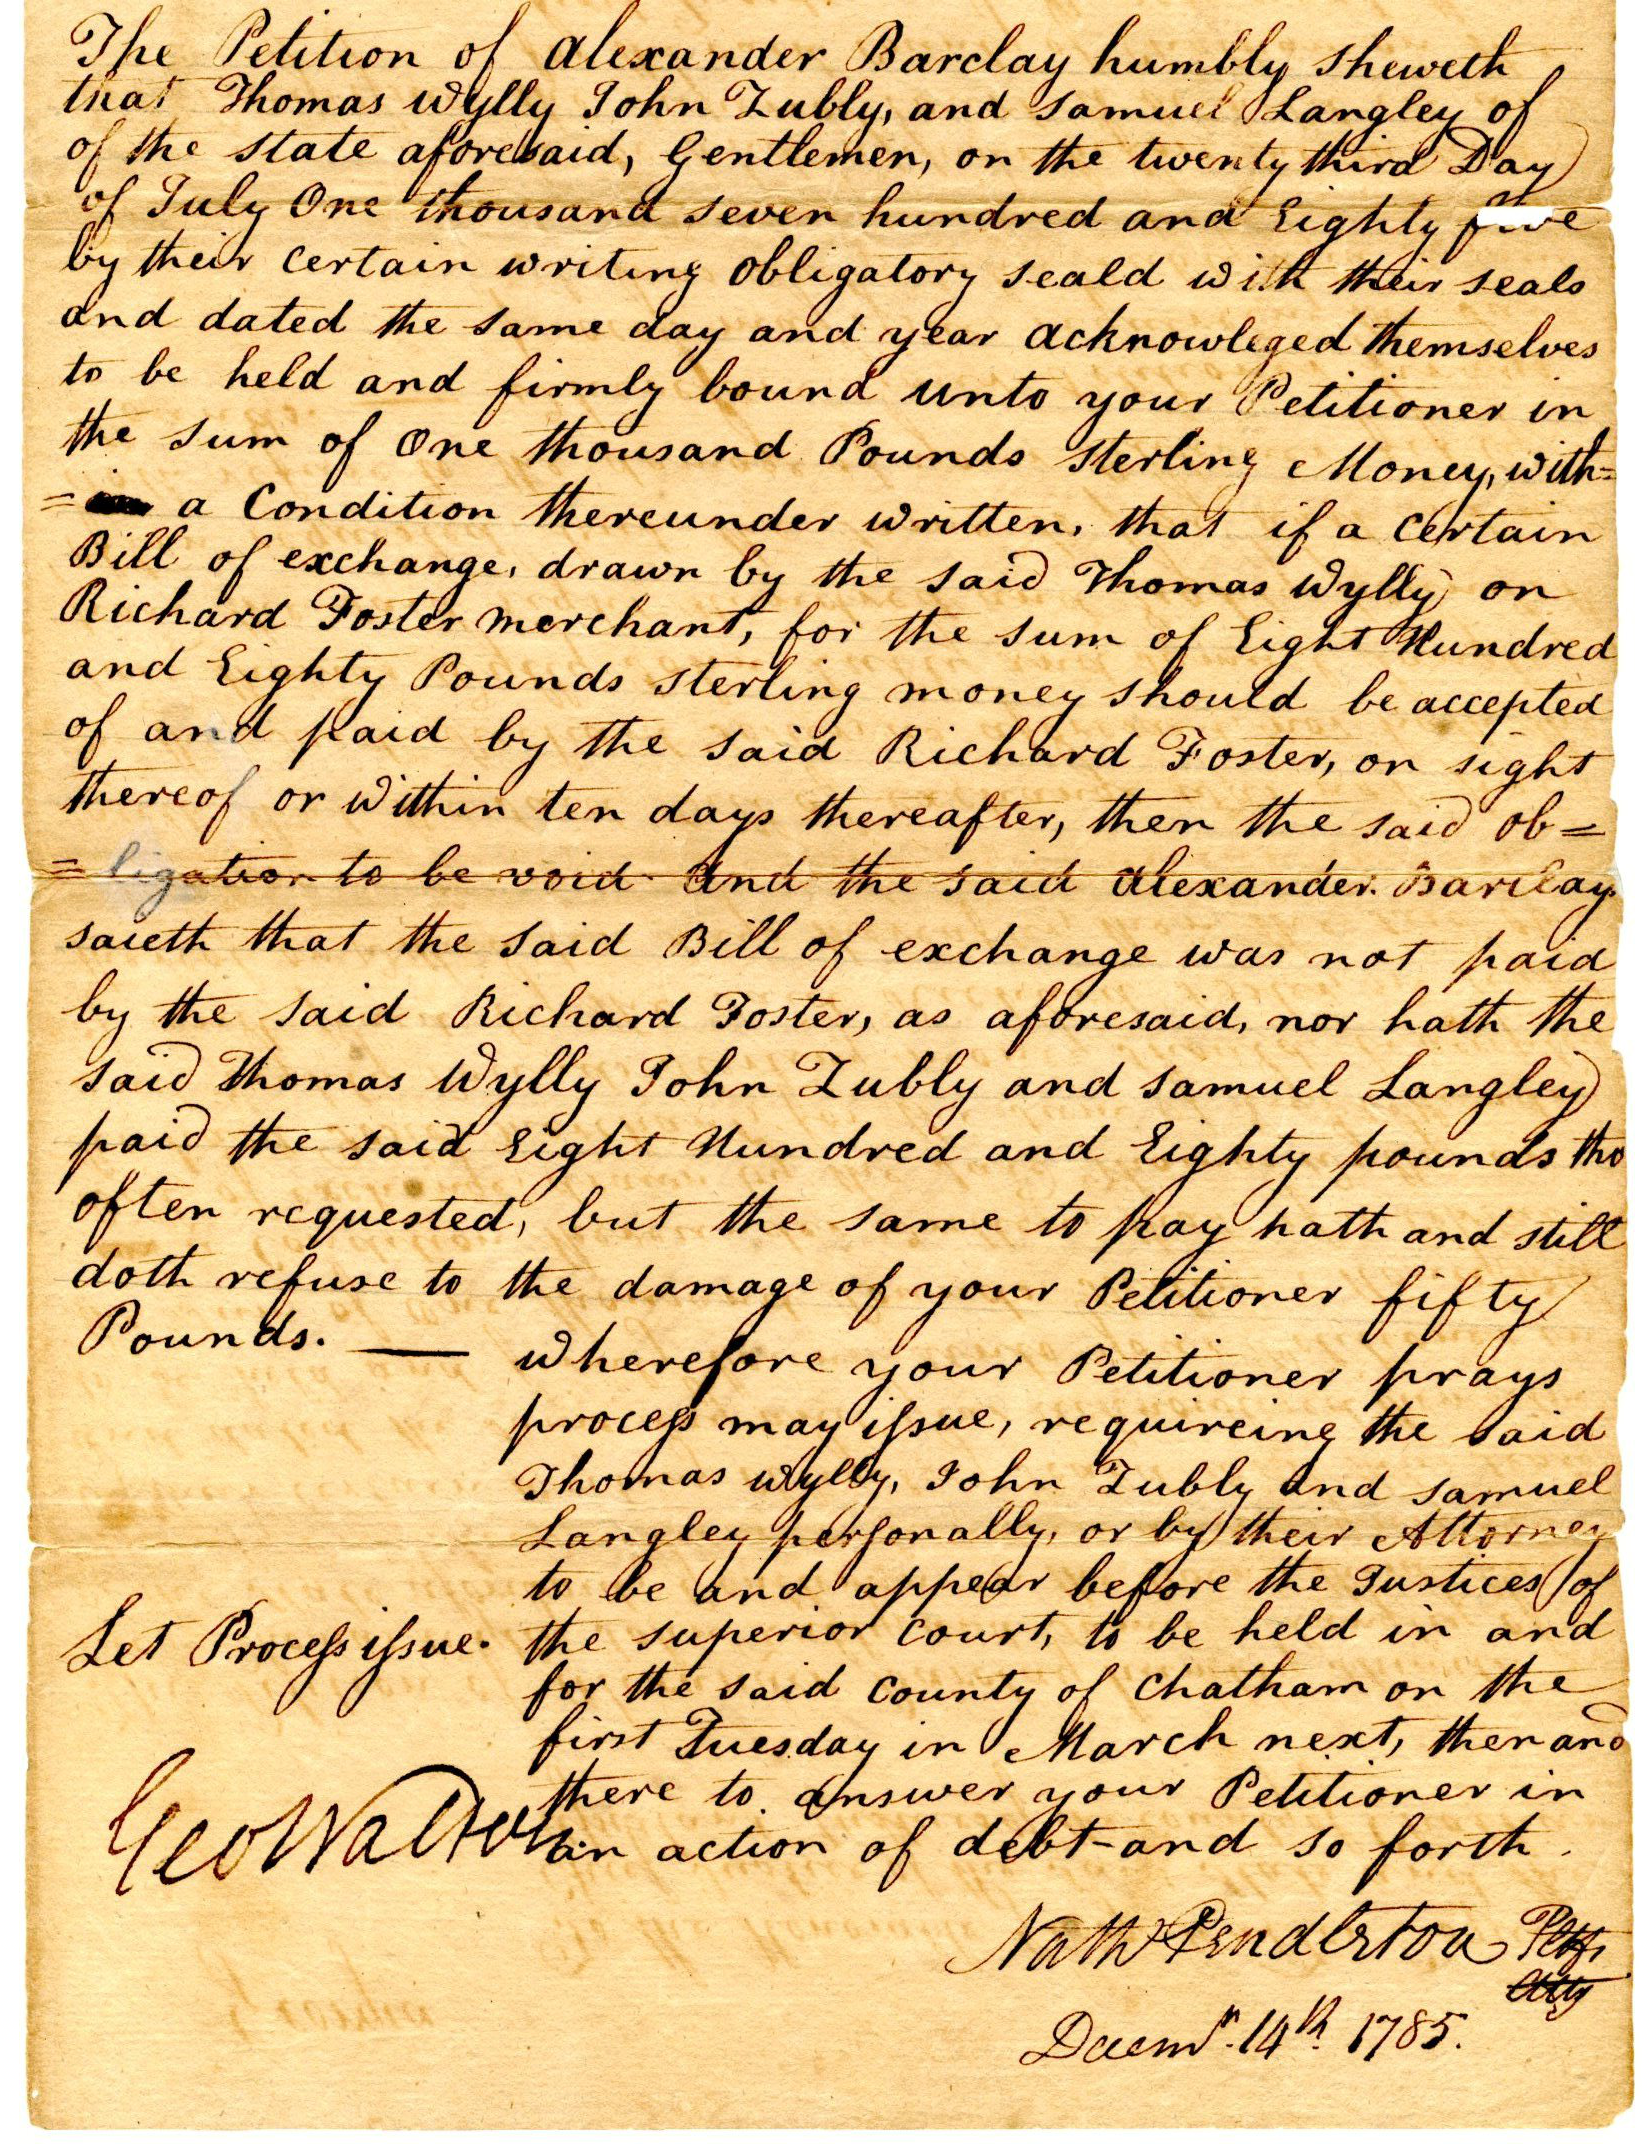 The Petition of Alexander Barclay humbly sheweth
that Thomas Wylly John Zubly, and Samuel Langley of
of the state aforesaid, Gentlemen, on the twenty third Day
of July One thousand seven hundred and Eighty five
by their certain writing obligatory seald with their seals
and dated the same day and year acknowleged themselves
to be held and firmly bound unto your Petitioner in
the sum of One thousand Pounds sterling Money, with=
= a Condition thereunder written, that if a certain
Bill of exchange, drawn by the said Thomas Wylly on
Richard Foster merchant, for the sum of Eight Hundred
and Eighty Pounds sterling money should be accepted
of and paid by the said Richard Foster, on sight
thereof or within ten days thereafter, then the said ob=
=ligation to be void and the said Alexander Barclay
saieth that the said Bill of exchange was not paid
by the said Richard Foster, as aforesaid, nor hath the
said Thomas Wylly John Zubly and Samuel Langley
paid the said Eight Hundred and Eighty pounds tho
often requested, but the same to pay hath and still
doth refuse to the damage of your Petitioner fifty
Pounds. —
Wherefore your Petitioner prays
process may issue, requireing the said
Thomas Wylly, John Zubly and Samuel
Langley personally, or by their Attorney
to be and appear before the Justices of
the superior court, to be held in and
for the said county of Chatham on the
first Tuesday in March next, then and
there to answer your Petitioner in
an action of debt and so forth.
Let Process issue.
Geo Walton
Nath Pendleton Pltfs
Atty
Decemr. 14th 1785.